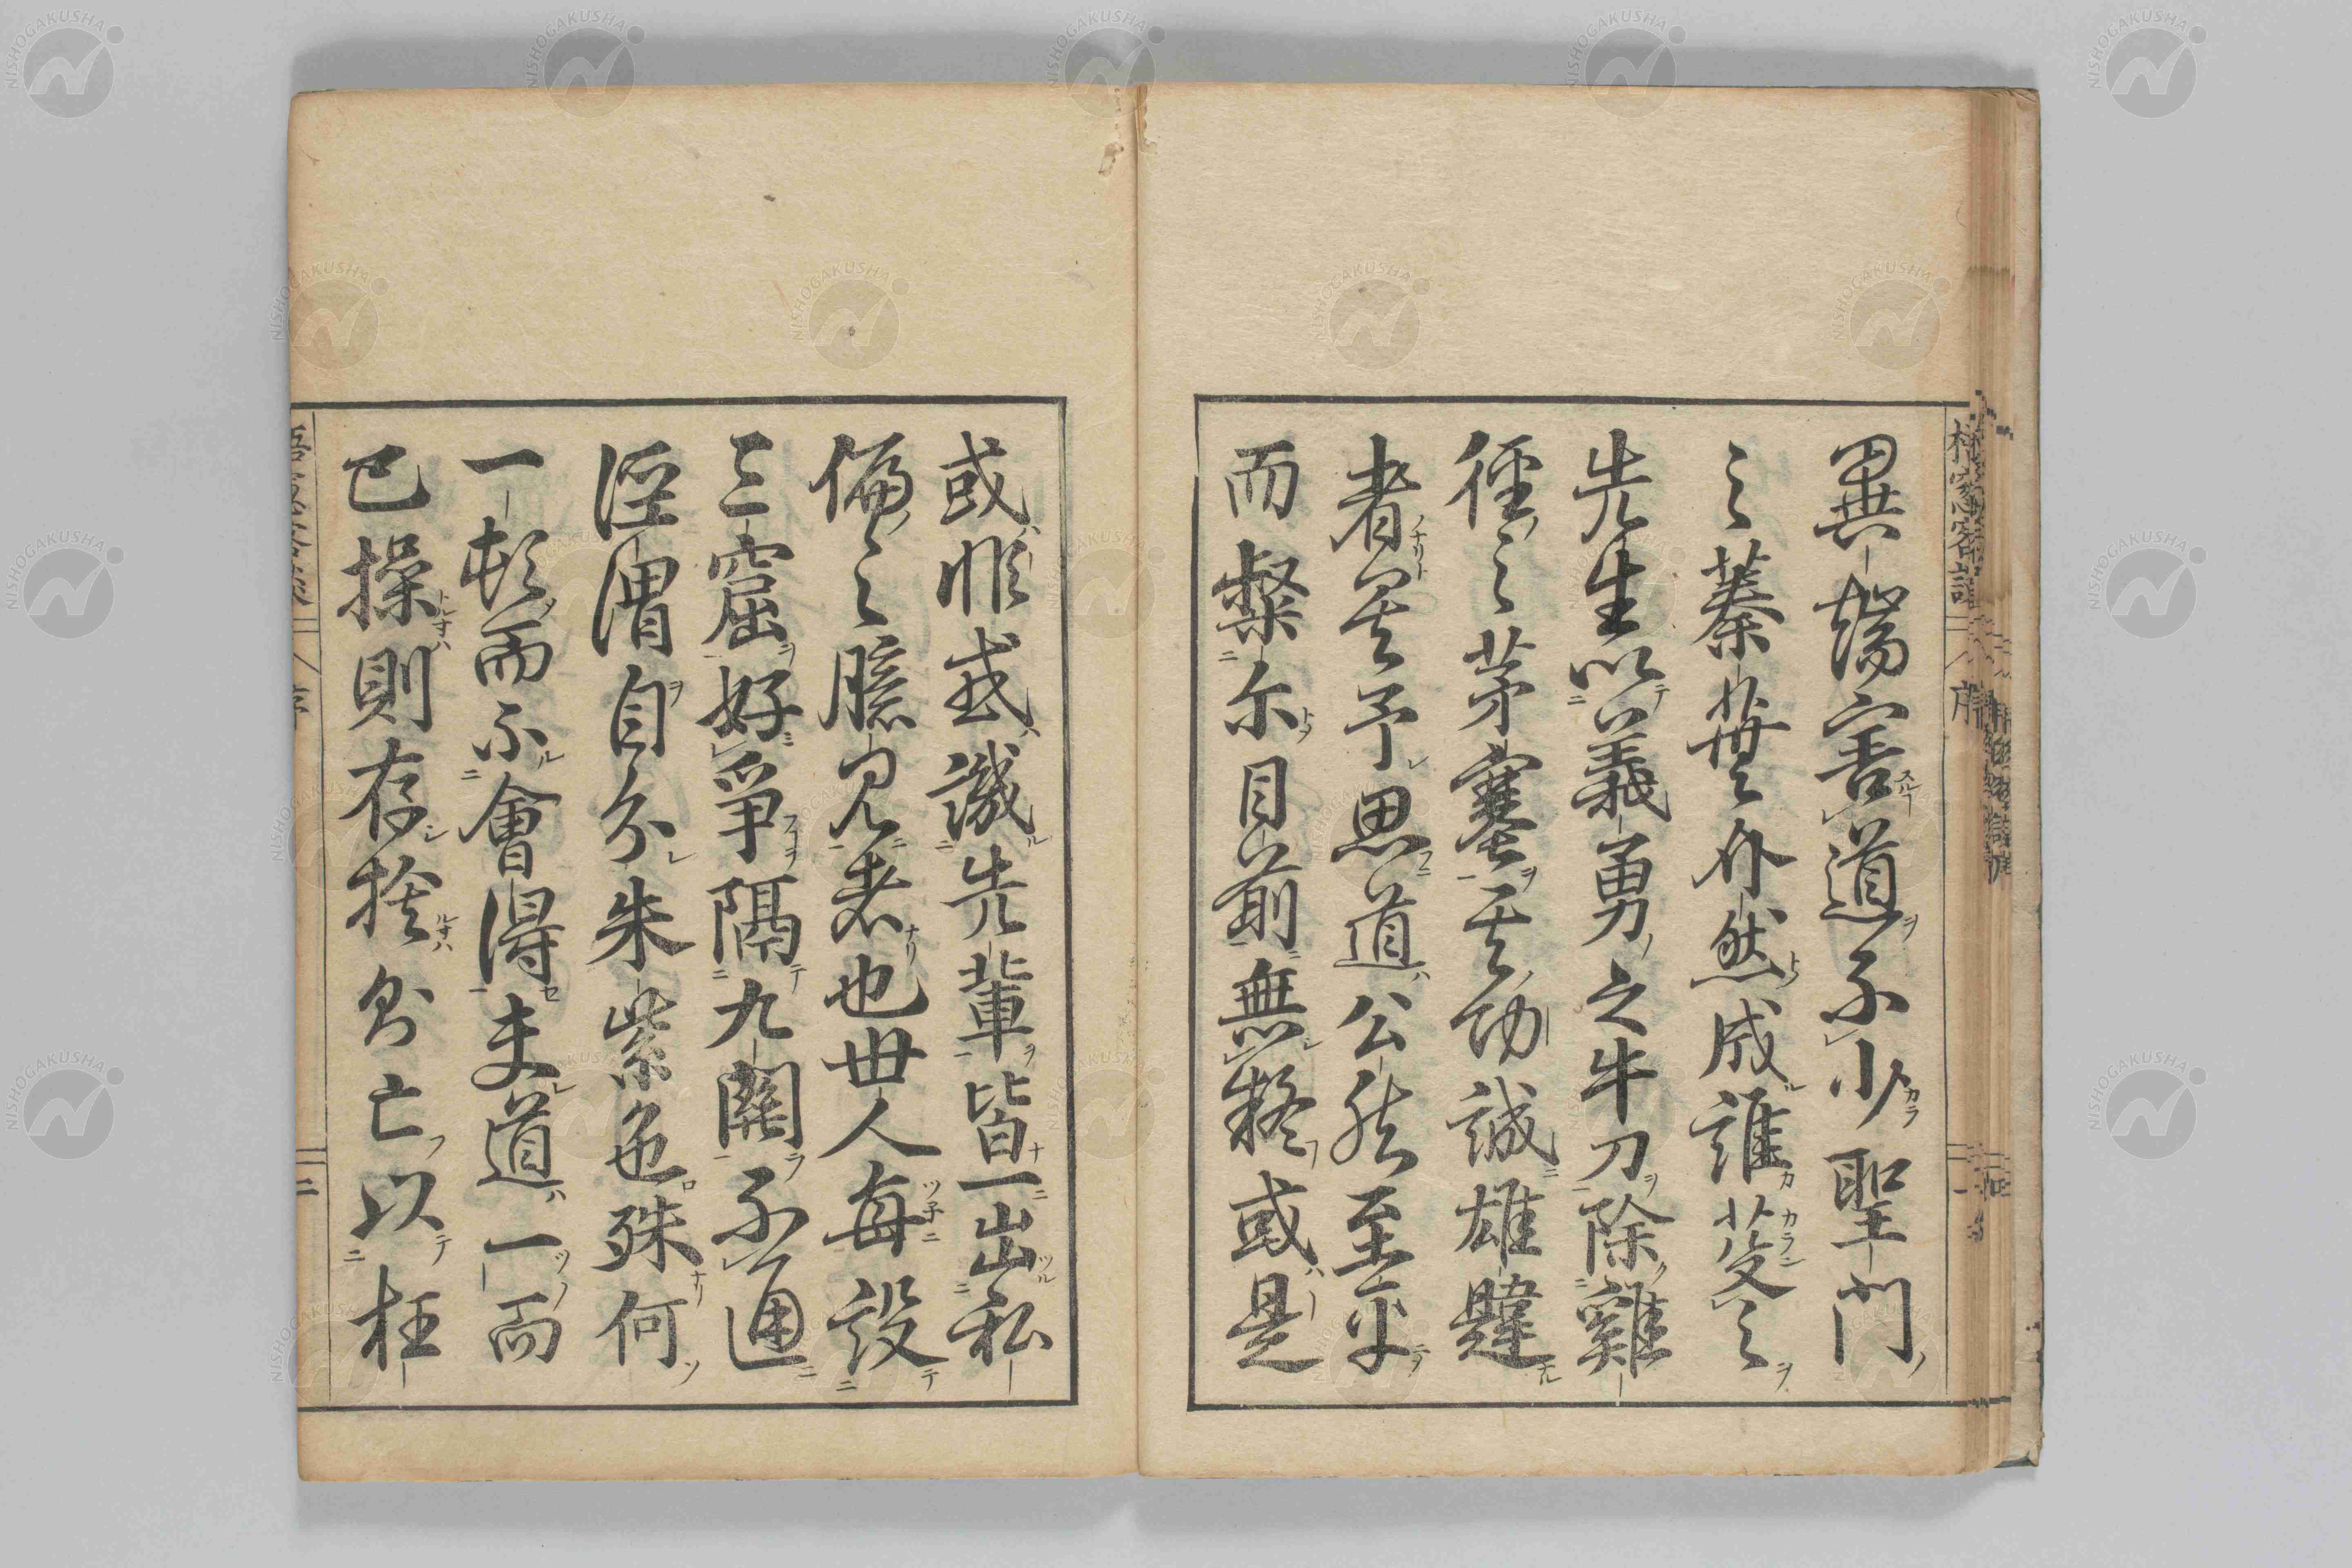 異端害道不少聖門
之蓁蕪々外然成誰芟之
先生以義勇之牛刀除雞
徑之茅塞其功誠雄韙
者矣予思道公然至平
而粲尓目前無疑或是
或非或譏先輩皆一出私
偏之臆見者也世人每設
三窟好爭隔九關不通
涇渭自分朱紫色殊何
一頓而不會得夫道一而
已操則存捨則亡以枉
NISHOGAKUSHA